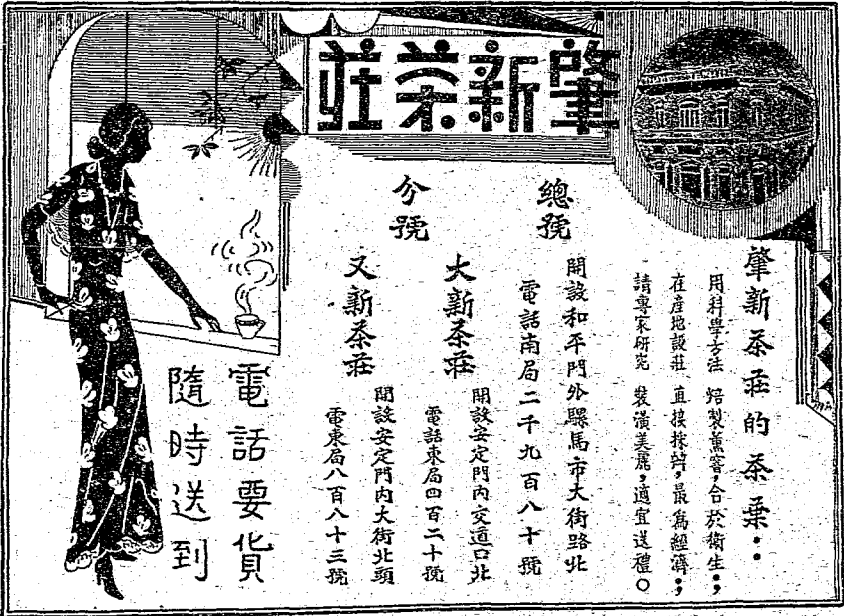 肇新茶莊
肇新茶莊的茶葉：
用科學方法 焙製薰窨，合於衛生；
在產地設莊 直接採辦，最為經濟；
請專家研究 裝潢美麗，適宜送禮。
總號
開設和平門外騾馬市大街路北
電話南局二千九百八十號
分號
大新茶莊
開設安定門內交道口北
電話東局四百二十號
又新茶莊
開設安定門內大街北頭
電東局八百八十三號
電話要貨
隨時送到